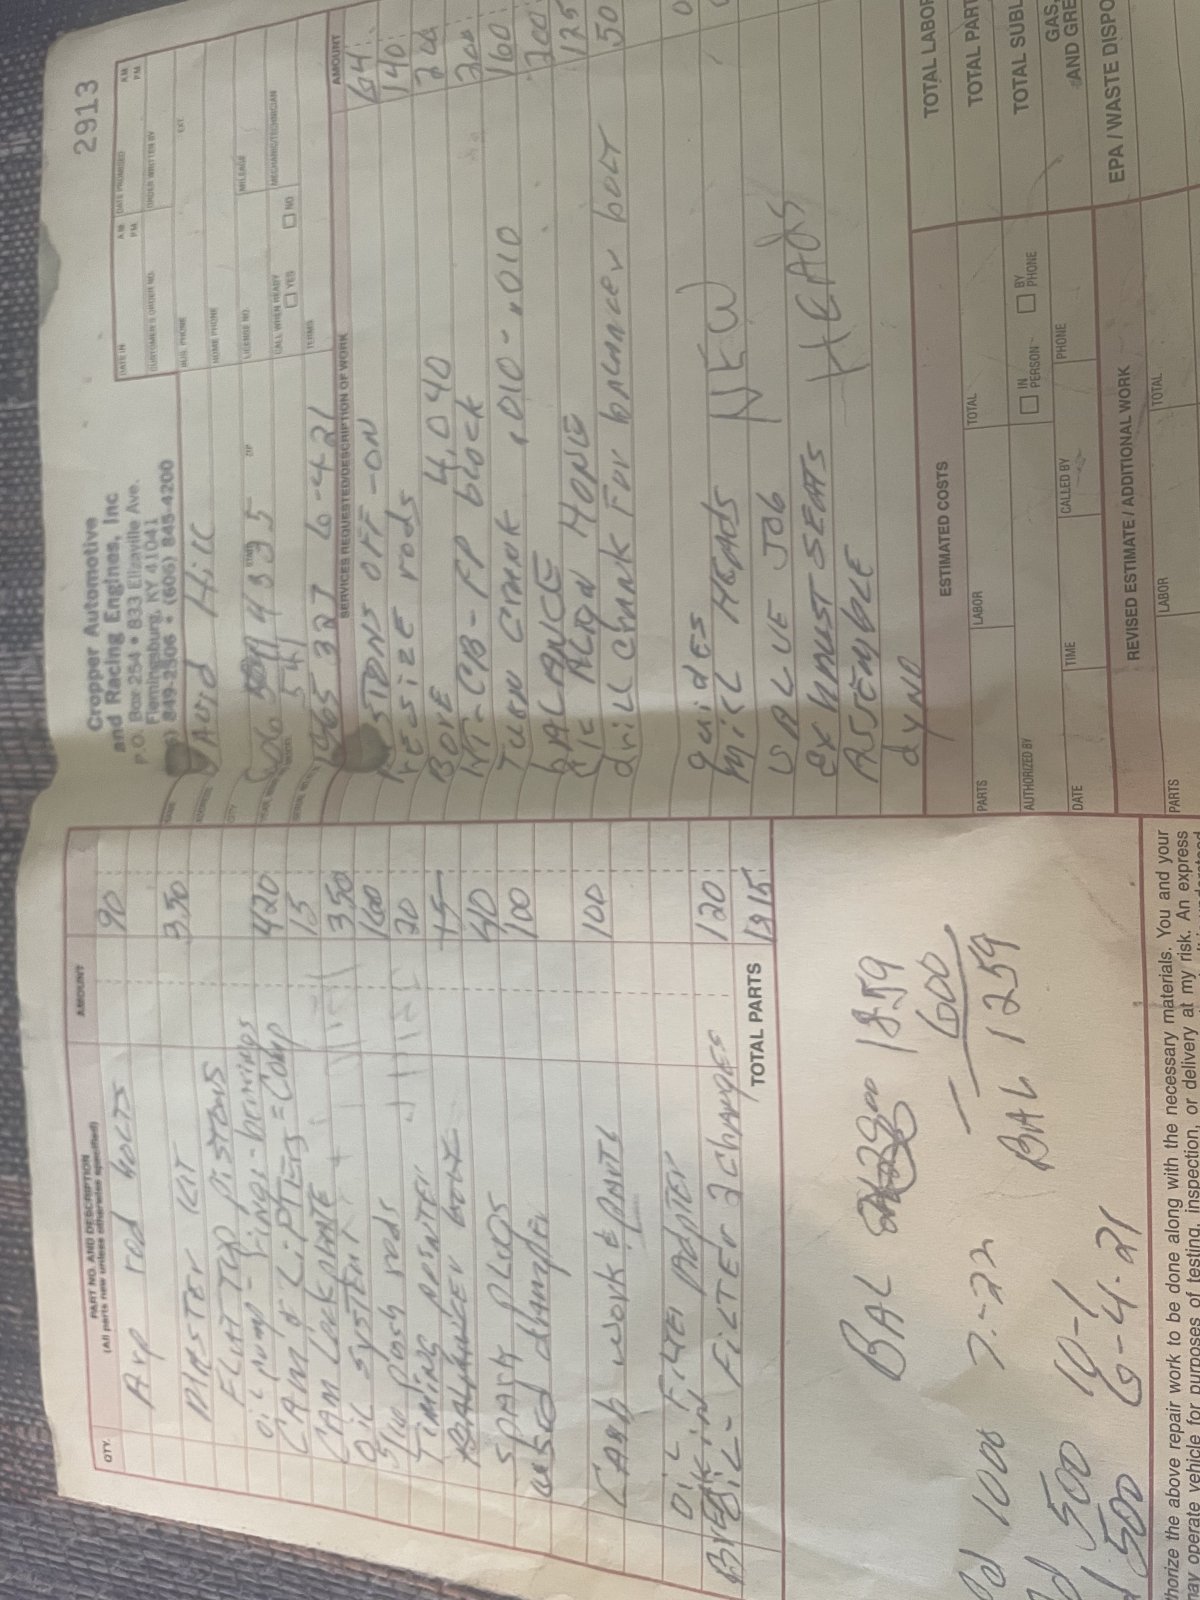 2913
Cropper Automotive
and Racing Engines, Inc
P.O. Box 254 • 833 Elizaville Ave.
Flemingsburg, KY 41041
849-2506 • (606) 845-4200
DATE IN
AM
PM
DATE PROMISED
AM
PM
CUSTOMER'S ORDER NO.
ORDER WRITTEN BY
NAME
David Hill
BUS. PHONE
EXT.
HOME PHONE
CITY
ZIP
606 584 4335
LICENSE NO.
MILEAGE
541
CALL WHEN READY
YES
NO
MECHANIC/TECHNICIAN
1965 327 6-4-21
TERMS
SERVICES REQUESTED/DESCRIPTION OF WORK
AMOUNT
PISTONS OFF -ON 64
resize rods 140
Bore 4.040 200
HT-CB-FP block 200
TURN CRANK .010-.010 160
bALANCE 200
ALIGN HONE 125
drill crank For balancer bolt 50
guides
Mill HEADS NEW
VALUE JOB
EXHAUST SEATS HEADS
ASSEMBLE
dyno
ESTIMATED COSTS
TOTAL LABOR
PARTS
LABOR
TOTAL
TOTAL PARTS
AUTHORIZED BY
IN
PERSON
BY
PHONE
TOTAL SUBL
GAS,
AND GRE
DATE
TIME
CALLED BY
PHONE
EPA / WASTE DISPO
REVISED ESTIMATE / ADDITIONAL WORK
PARTS
LABOR
TOTAL
QTY.
PART NO. AND DESCRIPTION
(All parts new unless otherwise specified)
AMOUNT
Arp rod bolts 90
MASTER KIT 350
FLAT TOP PISTONS
oil pump - rings - bearings 420
CAM & LiFTErS = Comp 15
CAM Lock plate 350
Oil SYSTEM 160
5/16 push rods 20
Timing pointer 15
BALANCER bolt 40
SPARK PLUGS 100
used damper
Carb work & parts 100
Oil Filter Adapter
BreAKiN
Oil - FiLTEr 2 ChANgES 120
TOTAL PARTS 1915
BAL 1859
- 600
BAL 1259
Pd 1000 7-22
Pd 500 10-1
d 500 6-4-21
horize the above repair work to be done along with the necessary materials. You and your
may operate vehicle for purposes of testing, inspection, or delivery at my risk. An express